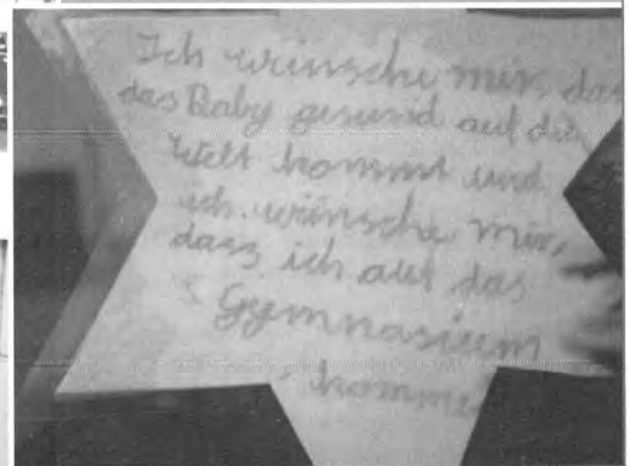 Ich wünsche mir, das
das Baby gesund auf die
Welt kommt und
ich wünsche mir,
dass ich auf das
Gymnasium
komme